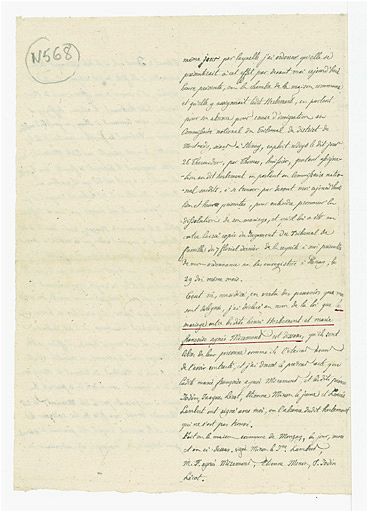 N568
même jour par laquelle j'ai ordonné qu'elle se
présenterait à cet effet par devant moi cejourd'hui
heure présente, en la chambre de la maison commune
et qu'elle y assignerait ledit Herbemont, en parlant
pour son absence pour cause d'émigration, au
Commissaire national du Tribunal du district de
ainsi exploit rédigé le dit jour
26 Thermidor, par huissier, portant
audit Herbemont en parlant au Commissaire natio-
nal susdit, à se trouver par devant moi cejourd'hui
lieu et heure présentes, pour entendre prononcer la
dissolution de son mariage, et qu'il lui a été en
outre laissé copie du Jugement du Tribunal de
famille du floréal dernier de la requête à moi présentée
de mon ordonnance au bas enregistrée à
29 du même mois.
en vertu des pouvoirs que me
sont délégués, j'ai déclaré au nom de la loi que le
mariage entre ledit Louis Herbemont et marie
françoise agnès Miremont est dissous, qu'ils sont
libres de leur personne comme ils l'étaient avant
de l'avoir contracté, et j'ai dressé le présent acte, que
ladite marie françoise agnès Miremont et lesdits
Jodin, Jacques Lécot, Etienne Miron le jeune et
Lambert ont signé avec moi, en l'absence dudit Herbemont
qui ne s'est pas trouvé.
Fait en la maison commune de jour, mois
et an ci-dessus, signé Miron le Jne Lambert,
M. F. agnès Miremont, Etienne Miron, J. Jodin
Lécot.